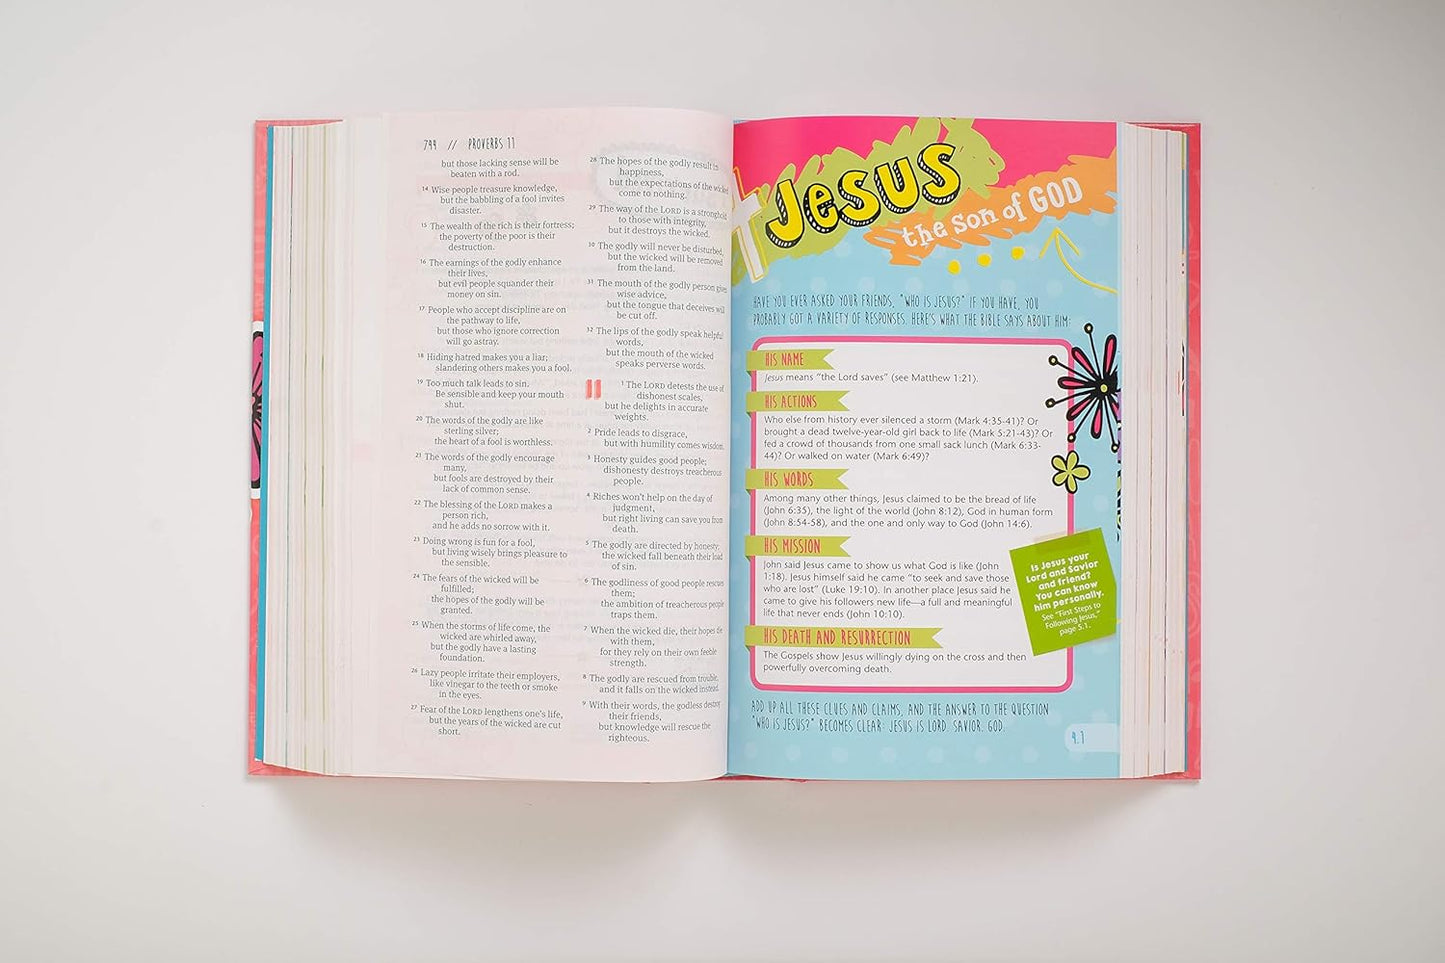 799 // PROVERBS 11
but those lacking sense will be
beaten with a rod.
14 Wise people treasure knowledge,
but the babbling of a fool invites
disaster.
15 The wealth of the rich is their fortress;
the poverty of the poor is their
destruction.
16 The earnings of the godly enhance
their lives,
but evil people squander their
money on sin.
17 People who accept discipline are on
the pathway to life,
but those who ignore correction
will go astray.
18 Hiding hatred makes you a liar;
slandering others makes you a fool.
19 Too much talk leads to sin.
Be sensible and keep your mouth
shut.
20 The words of the godly are like
sterling silver;
the heart of a fool is worthless.
21 The words of the godly encourage
many,
but fools are destroyed by their
lack of common sense.
22 The blessing of the LORD makes a
person rich,
and he adds no sorrow with it.
23 Doing wrong is fun for a fool,
but living wisely brings pleasure to
the sensible.
24 The fears of the wicked will be
fulfilled;
the hopes of the godly will be
granted.
25 When the storms of life come, the
wicked are whirled away,
but the godly have a lasting
foundation.
26 Lazy people irritate their employers,
like vinegar to the teeth or smoke
in the eyes.
27 Fear of the LORD lengthens one's life,
but the years of the wicked are cut
short.
28 The hopes of the godly result in
happiness,
but the expectations of the wicked
come to nothing.
29 The way of the LORD is a stronghold
to those with integrity,
but it destroys the wicked.
30 The godly will never be disturbed,
but the wicked will be removed
from the land.
31 The mouth of the godly person gives
wise advice,
but the tongue that deceives will
be cut off.
32 The lips of the godly speak helpful
words,
but the mouth of the wicked
speaks perverse words.
11 1 The LORD detests the use of
dishonest scales,
but he delights in accurate
weights.
2 Pride leads to disgrace,
but with humility comes wisdom.
3 Honesty guides good people;
dishonesty destroys treacherous
people.
4 Riches won't help on the day of
judgment,
but right living can save you from
death.
5 The godly are directed by honesty;
the wicked fall beneath their load
of sin.
6 The godliness of good people rescues
them;
the ambition of treacherous people
traps them.
7 When the wicked die, their hopes die
with them,
for they rely on their own feeble
strength.
8 The godly are rescued from trouble,
and it falls on the wicked instead.
9 With their words, the godless destroy
their friends,
but knowledge will rescue the
righteous.
Jesus
the Son of GOD
HAVE YOU EVER ASKED YOUR FRIENDS, "WHO IS JESUS?" IF YOU HAVE, YOU
PROBABLY GOT A VARIETY OF RESPONSES. HERE'S WHAT THE BIBLE SAYS ABOUT HIM:
HIS NAME
Jesus means "the Lord saves" (see Matthew 1:21).
HIS ACTIONS
Who else from history ever silenced a storm (Mark 4:35-41)? Or
brought a dead twelve-year-old girl back to life (Mark 5:21-43)? Or
fed a crowd of thousands from one small sack lunch (Mark 6:33-
44)? Or walked on water (Mark 6:49)?
HIS WORDS
Among many other things, Jesus claimed to be the bread of life
(John 6:35), the light of the world (John 8:12), God in human form
(John 8:54-58), and the one and only way to God (John 14:6).
HIS MISSION
John said Jesus came to show us what God is like (John
1:18). Jesus himself said he came "to seek and save those
who are lost" (Luke 19:10). In another place Jesus said he
came to give his followers new life—a full and meaningful
life that never ends (John 10:10).
HIS DEATH AND RESURRECTION
The Gospels show Jesus willingly dying on the cross and then
powerfully overcoming death.
Is Jesus your
Lord and Savior
and friend?
You can know
him personally.
See "First Steps to
Following Jesus,"
page 5.1.
ADD UP ALL THESE CLUES AND CLAIMS, AND THE ANSWER TO THE QUESTION
"WHO IS JESUS?" BECOMES CLEAR: JESUS IS LORD. SAVIOR. GOD.
9.1